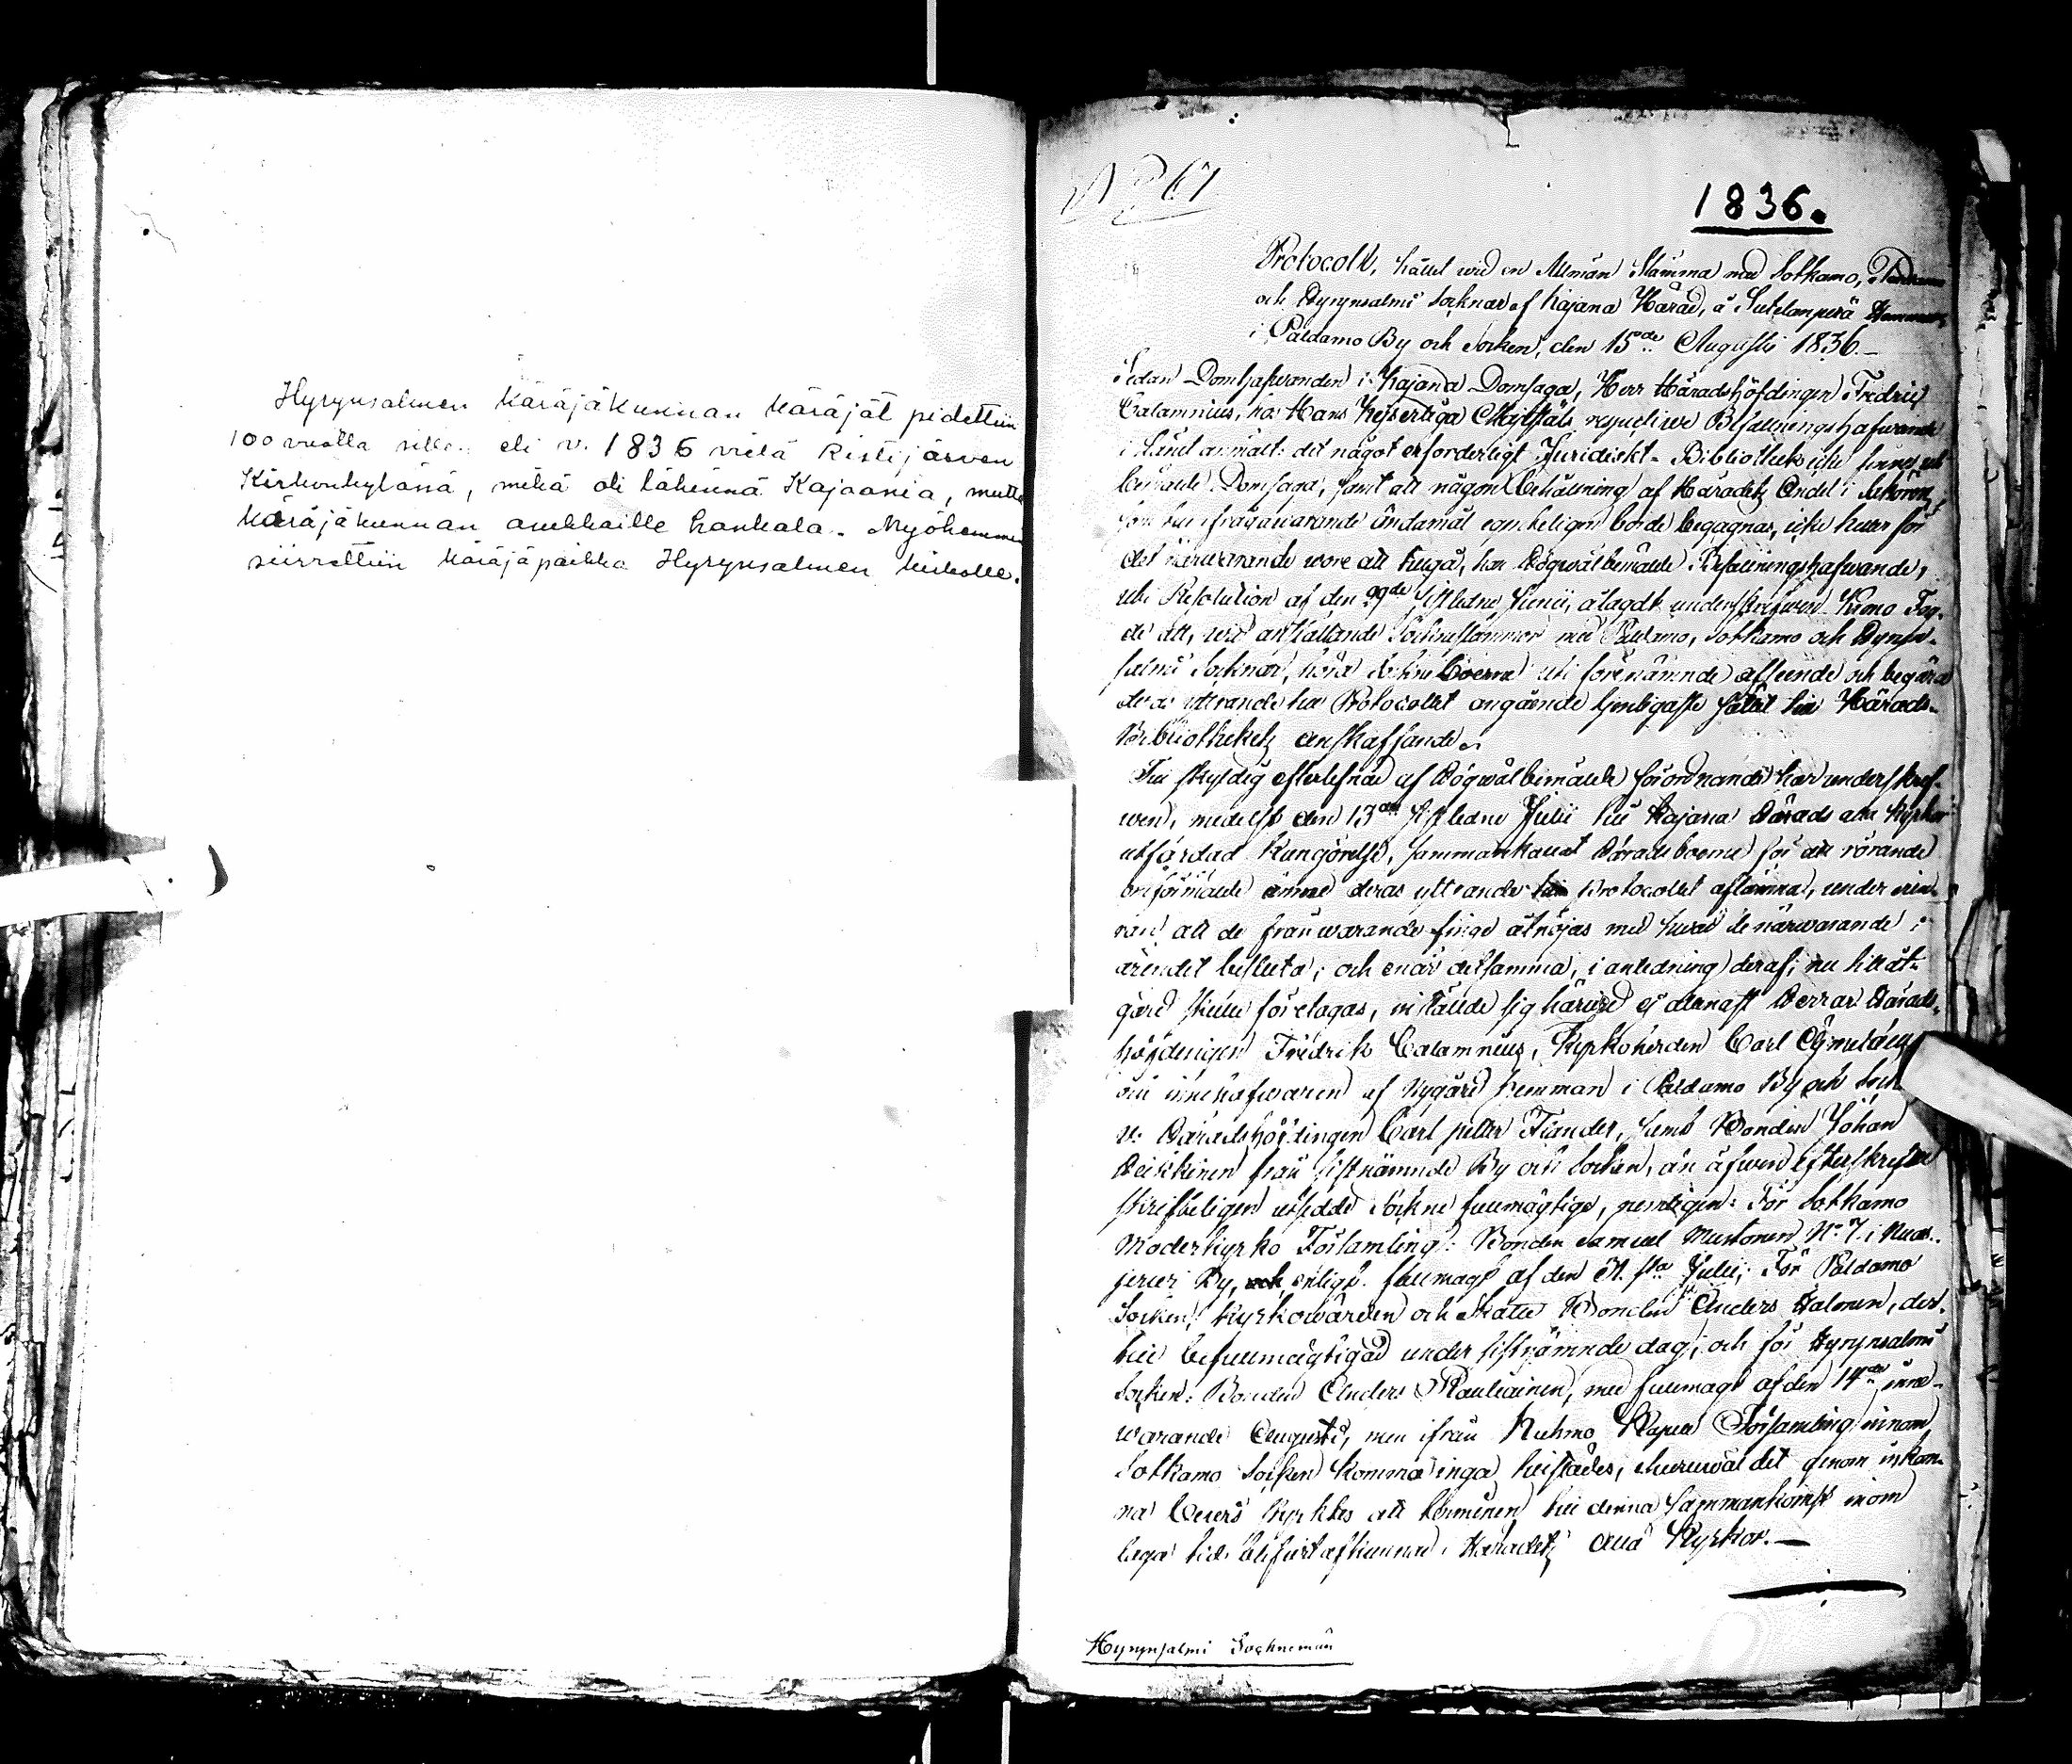 Hyrynsalmen käräjäkunnan käräjät pidettiin
100 vuotta sitten eli v. 1836 vielä Ristijärven
Kirkonkylässä, mikä oli lähinnä Kajaania, mutta
käräjäkunnan asukkaille hankala. Myöhemmin
siirrettiin käräjäpaikka Hyrynsalmen kirkolle.
No 67
1836.
Protocoll, hållet wid en Allmän Stämma med Sotkamo, Paldamo
och Hyrynsalmi Socknar af Kajana Härad, å Sutelanperä Hemman
i Paldamo By och Socken, den 15de Augusti 1836.
Sedan Domhafwanden i Kajana Domsaga, Herr Häradshöfdingen Fredric
Calamnius, hos Hans Kejserliga Maj:ts respective Befallningshafwande
i Länet anmält: det något erforderligt Juridiskt Bibliothek icke finnes wid
bemälde Domsaga, samt att någon behållning af Häradets Andel i Saköron,
som till ifrågawarande ändamål egenteligen borde begagnas, icke heller för
det närwarande wore att tillgå, har Högwälbemälde Befallningshafwande,
uti Resolution af den 29de sistledne Junii, ålagdt underskrifwen Krono Fog-
de att, wid anställande Sockne stämmor med Paldamo, Sotkamo och Hyryn-
salmi Socknar, höra Sockneboerne uti förenämnde afseende och begära
deras yttrande till Protocollet angående tjenligaste sättet till Härads-
Bibliothekets anskaffande.
Till skyldig efterlefnad af Högwälbemälde förordnande har underskref-
wen, medelst den 13de sistledne Julii till Kajana Härads alla Kyrkor
utfärdad Kungörelse, sammankallat Häradsboerne för att rörande
oförmälde ämne deras yttrande till Protocollet aflämna, under erin-
ran att de frånwarande finge åtnöjas med hwad de närwarande i
ärendet besluta; och enär detsamma, i anledning deraf, nu till åt-
gärd skulle företagas, inställde sig härwid ej allenast Herrar Härads-
höfdingen Fredrik Calamnius, Kyrkoherden Carl
och innehafwaren af Nygård hemman i Paldamo By och Socken
V. Häradshöfdingen Carl Petter Fiandt, samt Bonden Johan
Heikkinen från sistnämnde By och Socken, än äfwen efterskrefne
skrifteligen utsedde Sockne fullmägtige, nemligen: För Sotkamo
Moderkyrko Församling: Bonden Samuel Mustonen No 7 i Nuas-
jerwi By, enligt fullmagt af den 31sta Julii; För Paldamo
Socken: Kyrkowärden och Skatte Bonden Anders Halonen, der-
till befullmägtigad under sistnämnde dag; och för Hyrynsalmi
Socken: Bonden Anders Rauliainen, med fullmagt af den 14de inne-
warande Augusti, men ifrån Kuhmo Kapell Församling innom
Sotkamo Socken komma inga tillstädes, churuwäl det genom inkom-
na bewis styrktes att terminen till denna sammankomst inom
laga tid blifwit afkunnad i Häradets alla Kyrkor.
Hyrynsalmi Sockneman